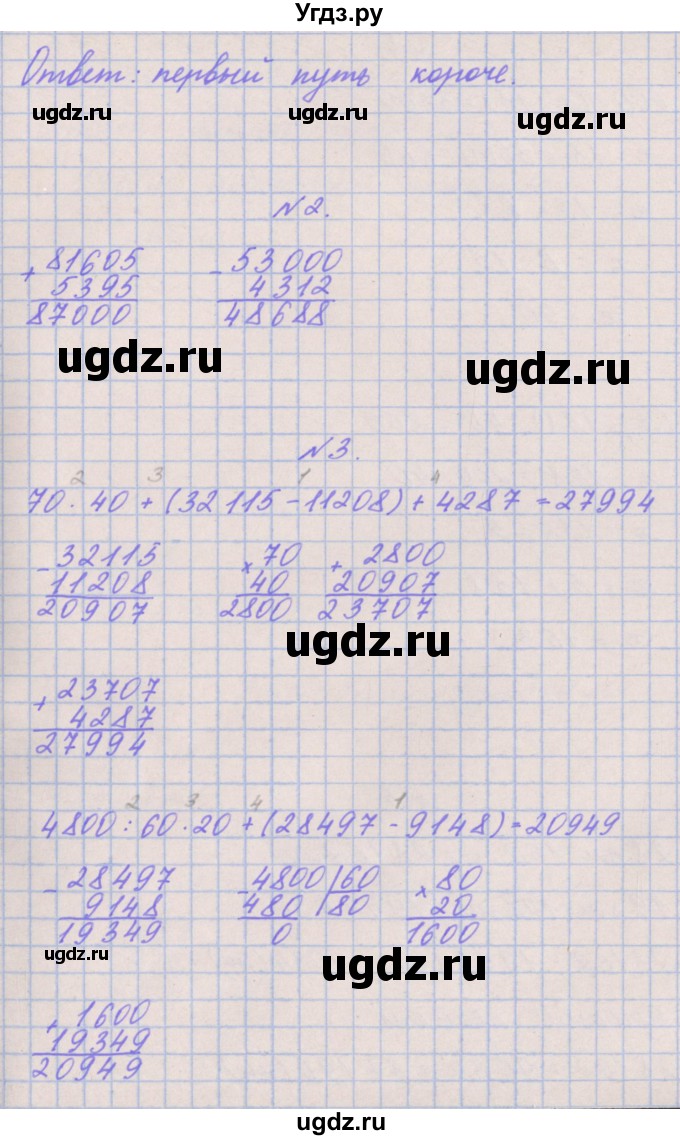 Угдз.ру
Ответ: первый путь короче.
ugdz.ru ugdz.ru ugdz.ru
№2.
+ 81605 - 53000
5395 4312
87000 48688
ugdz.ru ugdz.ru
№3.
2 3 1 4
70 · 40 + (32115 - 11208) + 4287 = 27994
- 32115 × 70 + 2800
11208 40 20907
20907 2800 23707
ugdz.ru
+ 23707
4287
27994
2 3 4 1
4800 : 60 · 20 + (28497 - 9148) = 20949
- 28497 - 4800 | 60 × 80
9148 480 | 80 20
19349 0 1600
ugdz.ru ugdz.ru
+ 1600
19349
20949
ugdz.ru